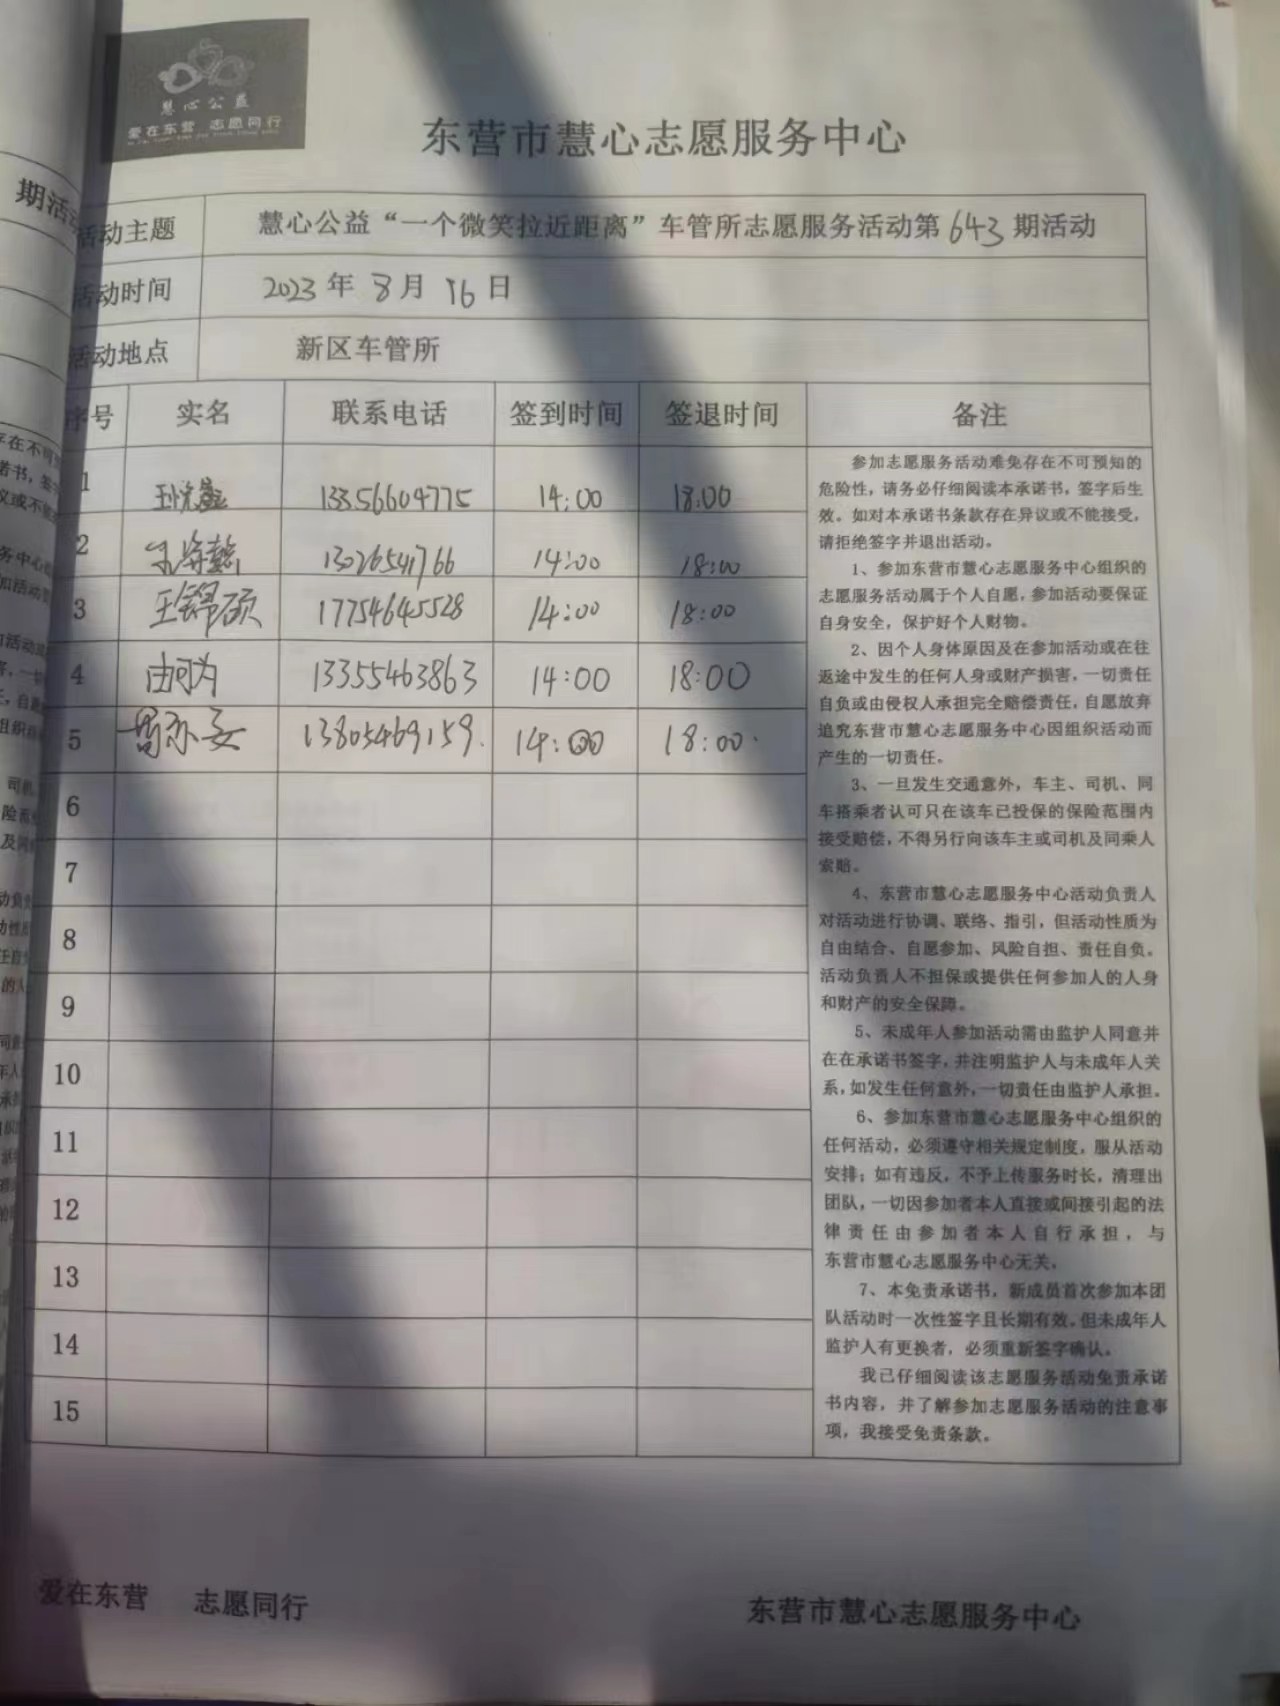 慧心公益
爱在东营 志愿同行
东营市慧心志愿服务中心
期活动
活动主题 慧心公益“一个微笑拉近距离”车管所志愿服务活动第643期活动
活动时间 2023年8月16日
活动地点 新区车管所
序号 实名 联系电话 签到时间 签退时间 备注
1 13356604775 14:00 18:00
2 14:00 18:00
3 王锦硕 17754645528 14:00 18:00
4 由可为 13355463863 14:00 18:00
5 13805469159. 14:00 18:00.
6
7
8
9
10
11
12
13
14
15
参加志愿服务活动难免存在不可预知的
危险性，请务必仔细阅读本承诺书，签字后生
效。如对本承诺书条款存在异议或不能接受，
请拒绝签字并退出活动。
1、参加东营市慧心志愿服务中心组织的
志愿服务活动属于个人自愿，参加活动要保证
自身安全，保护好个人财物。
2、因个人身体原因及在参加活动或在往
返途中发生的任何人身或财产损害，一切责任
自负或由侵权人承担完全赔偿责任，自愿放弃
追究东营市慧心志愿服务中心因组织活动而
产生的一切责任。
3、一旦发生交通意外，车主、司机、同
车搭乘者认可只在该车已投保的保险范围内
接受赔偿，不得另行向该车主或司机及同乘人
索赔。
4、东营市慧心志愿服务中心活动负责人
对活动进行协调、联络、指引，但活动性质为
自由结合、自愿参加、风险自担、责任自负。
活动负责人不担保或提供任何参加人的人身
和财产的安全保障。
5、未成年人参加活动需由监护人同意并
在在承诺书签字，并注明监护人与未成年人关
系，如发生任何意外，一切责任由监护人承担。
6、参加东营市慧心志愿服务中心组织的
任何活动，必须遵守相关规定制度，服从活动
安排；如有违反，不予上传服务时长，清理出
团队，一切因参加者本人直接或间接引起的法
律责任由参加者本人自行承担，与
东营市慧心志愿服务中心无关。
7、本免责承诺书，新成员首次参加本团
队活动时一次性签字且长期有效。但未成年人
监护人有更换者，必须重新签字确认。
我已仔细阅读该志愿服务活动免责承诺
书内容，并了解参加志愿服务活动的注意事
项，我接受免责条款。
爱在东营 志愿同行
东营市慧心志愿服务中心